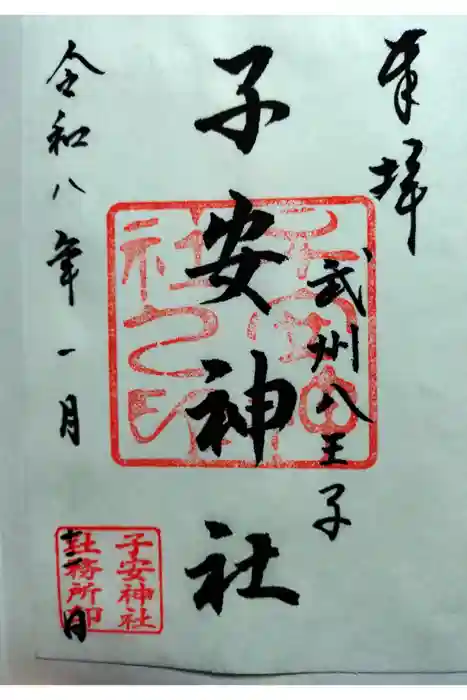 奉拝
武州八王子
子安神社
令和八年一月 日
子安神社
社務所印